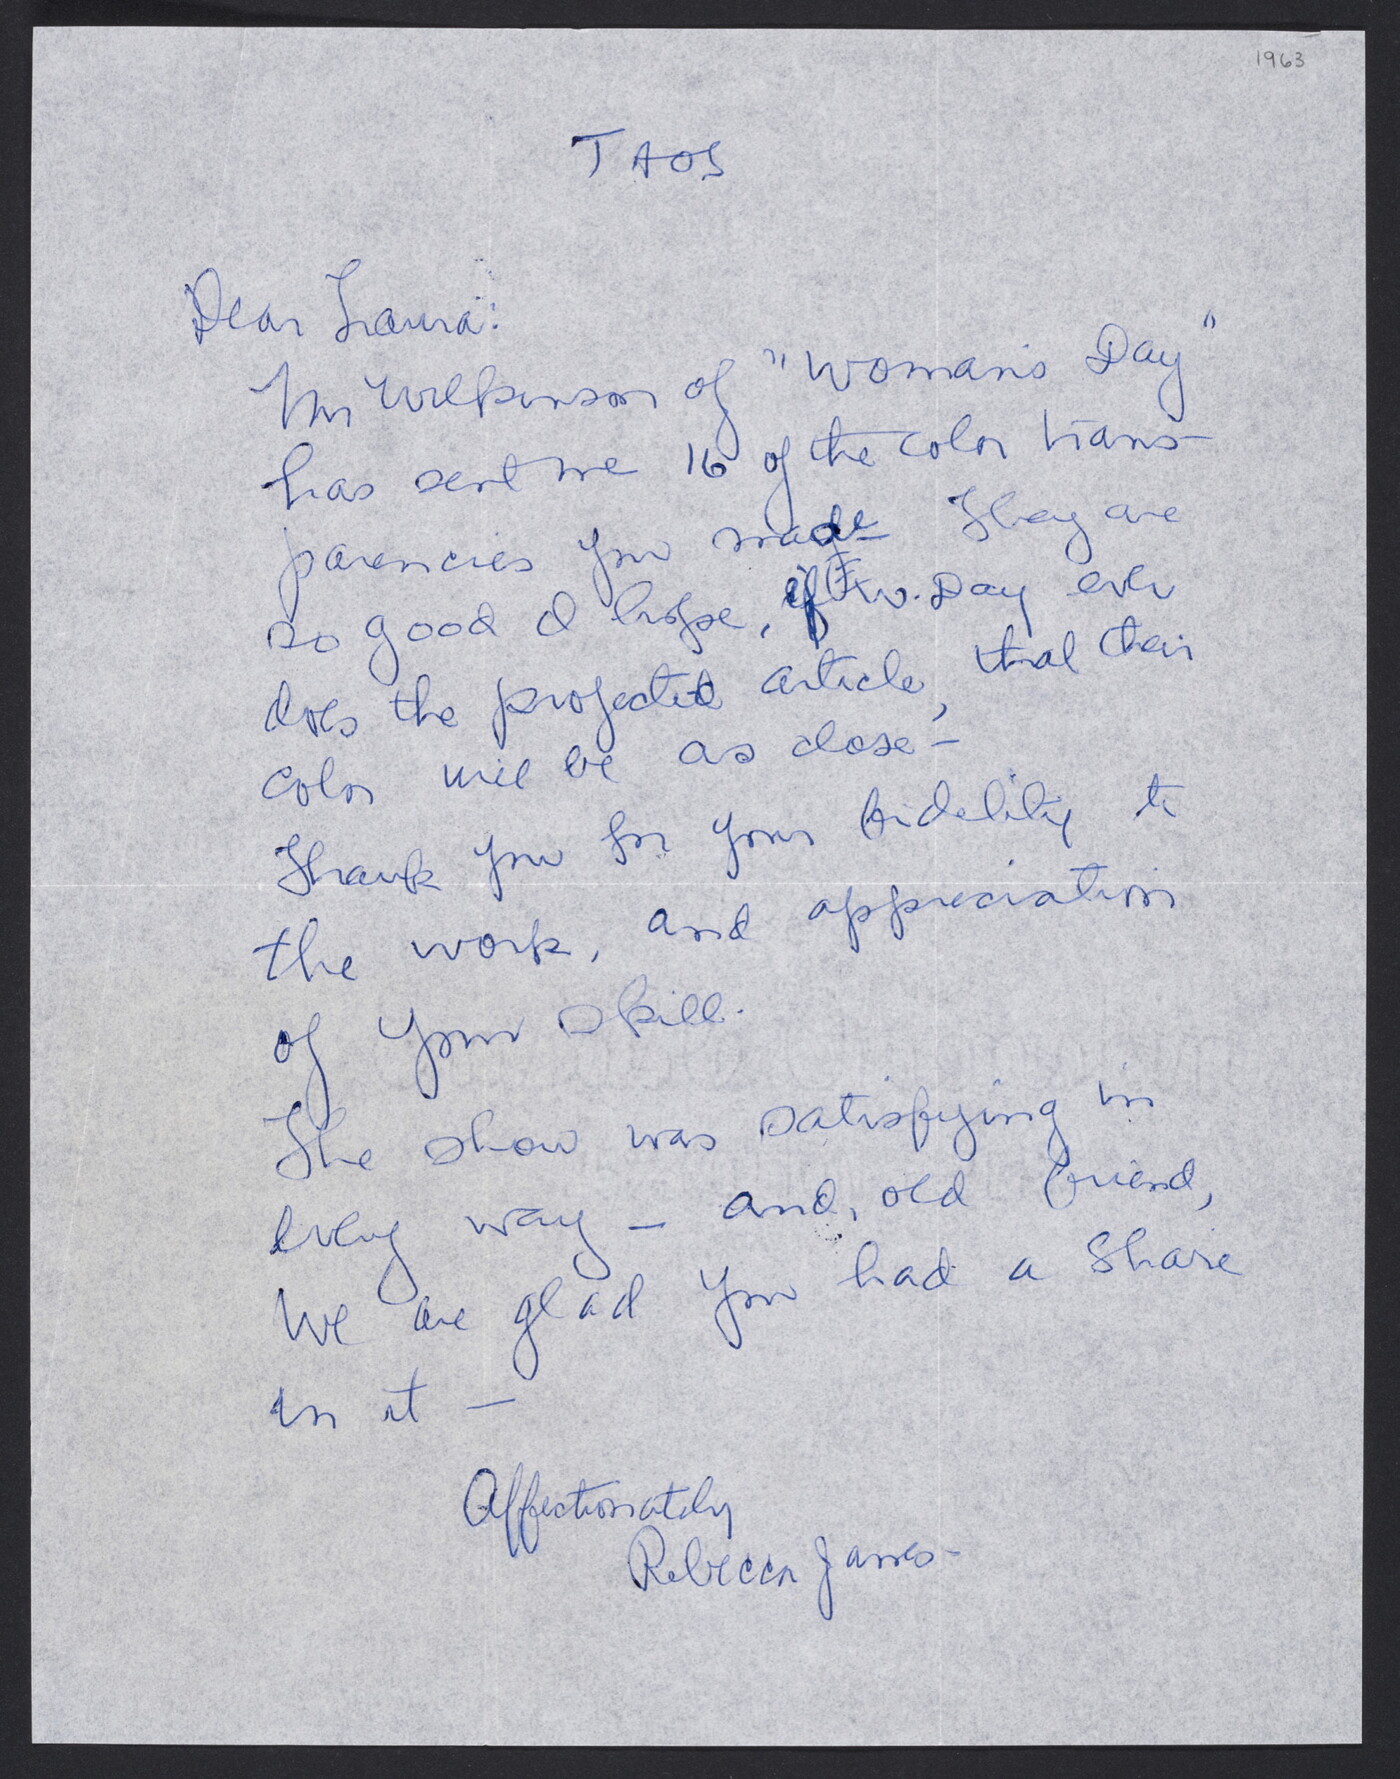 1963
TAOS
Dear Laura:
Mr Wilkinson of "Woman's Day"
has sent me 16 of the color trans-
parencies you made They are
so good I hope, if W. Day ever
does the projected article, that their
color will be as close –
Thank you for your fidelity to
the work, and appreciation
of your skill.
The show was satisfying in
every way – and, old friend,
We are glad you had a share
in it –
Affectionately
Rebecca James –